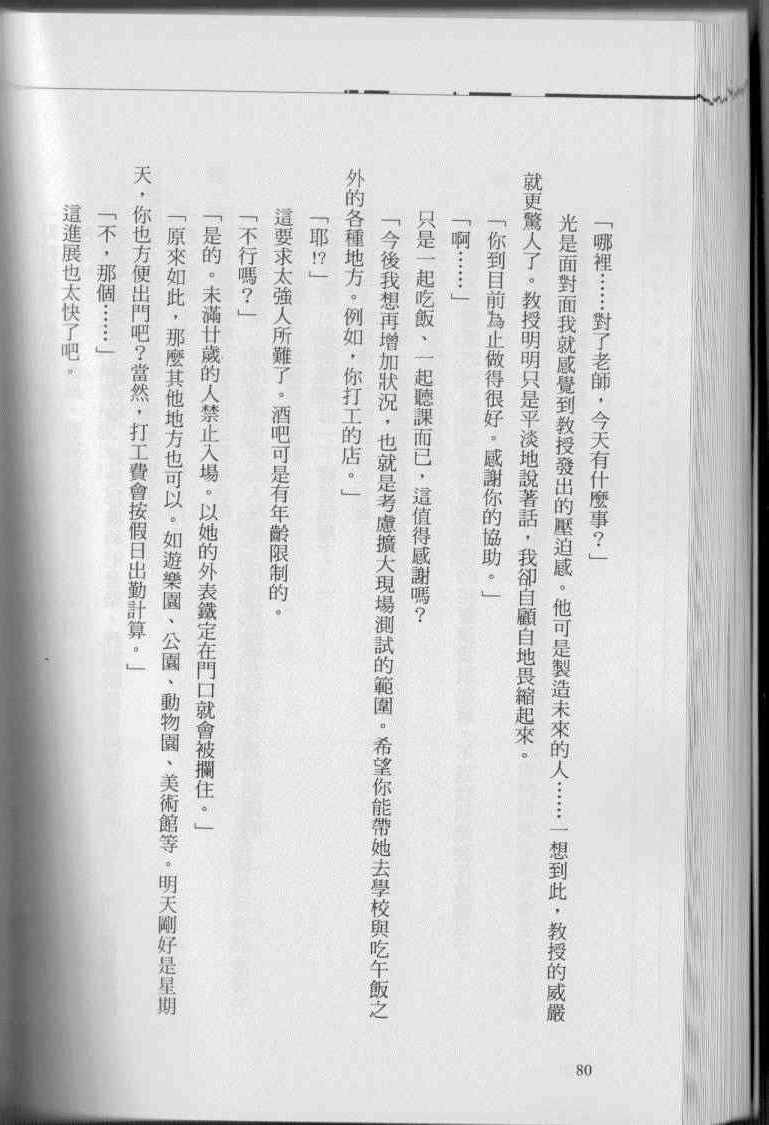 「哪裡……對了老師，今天有什麼事？」
光是面對面我就感覺到教授發出的壓迫感。他可是製造未來的人……一想到此，教授的威嚴
就更驚人了。教授明明只是平淡地說著話，我卻自顧自地畏縮起來。
「你到目前為止做得很好。感謝你的協助。」
「啊……」
只是一起吃飯、一起聽課而已，這值得感謝嗎？
「今後我想再增加狀況，也就是考慮擴大現場測試的範圍。希望你能帶她去學校與吃午飯之
外的各種地方。例如，你打工的店。」
「耶!?」
這要求太強人所難了。酒吧可是有年齡限制的。
「不行嗎？」
「是的。未滿廿歲的人禁止入場。以她的外表鐵定在門口就會被攔住。」
「原來如此，那麼其他地方也可以。如遊樂園、公園、動物園、美術館等。明天剛好是星期
天，你也方便出門吧？當然，打工費會按假日出勤計算。」
「不，那個……」
這進展也太快了吧。
80